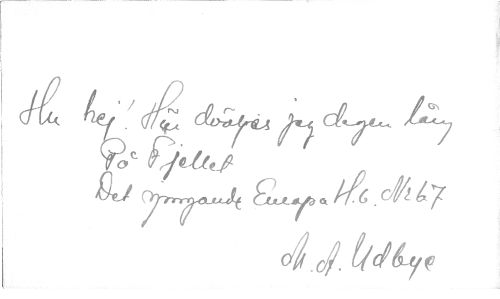 Hu hej! Här dväljas jag dagen lång
På Fjellet
Det syngande Europa H.6. Nr 67
M. A. Udbye